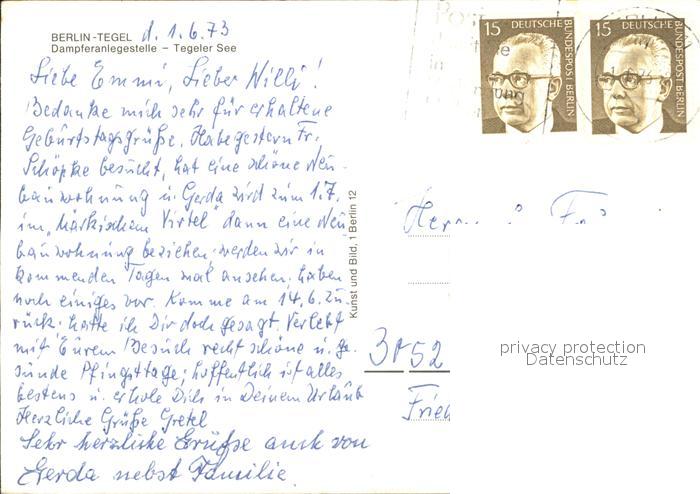 BERLIN-TEGEL d. 1.6.73
Dampferanlegestelle – Tegeler See
Liebe Emmi, Lieber Willi!
Bedanke mich sehr für erhaltene
Geburtstagsgrüße. Habe gestern Fr.
Schöpke besucht, hat eine schöne Neu-
bauwohnung u. Gerda wird zum 1.7.
im „Märkischem Virtel" dann eine Neu
bauwohnung beziehen, werden wir in
kommenden Tagen mal ansehen, haben
noch einiges vor. Komme am 14.6. zu-
rück, hatte ich Dir doch gesagt. Verlebt
mit Eurem Besuch recht schöne u. ge-
sunde Pfingsttage, hoffentlich ist alles
bestens u. erhole Dich in Deinem Urlaub
Herzliche Grüße Gretel
Sehr herzliche Grüße auch von
Gerda nebst Familie.
Kunst und Bild, 1 Berlin 12
15 DEUTSCHE BUNDESPOST BERLIN
15 DEUTSCHE BUNDESPOST BERLIN
3052
privacy protection
Datenschutz